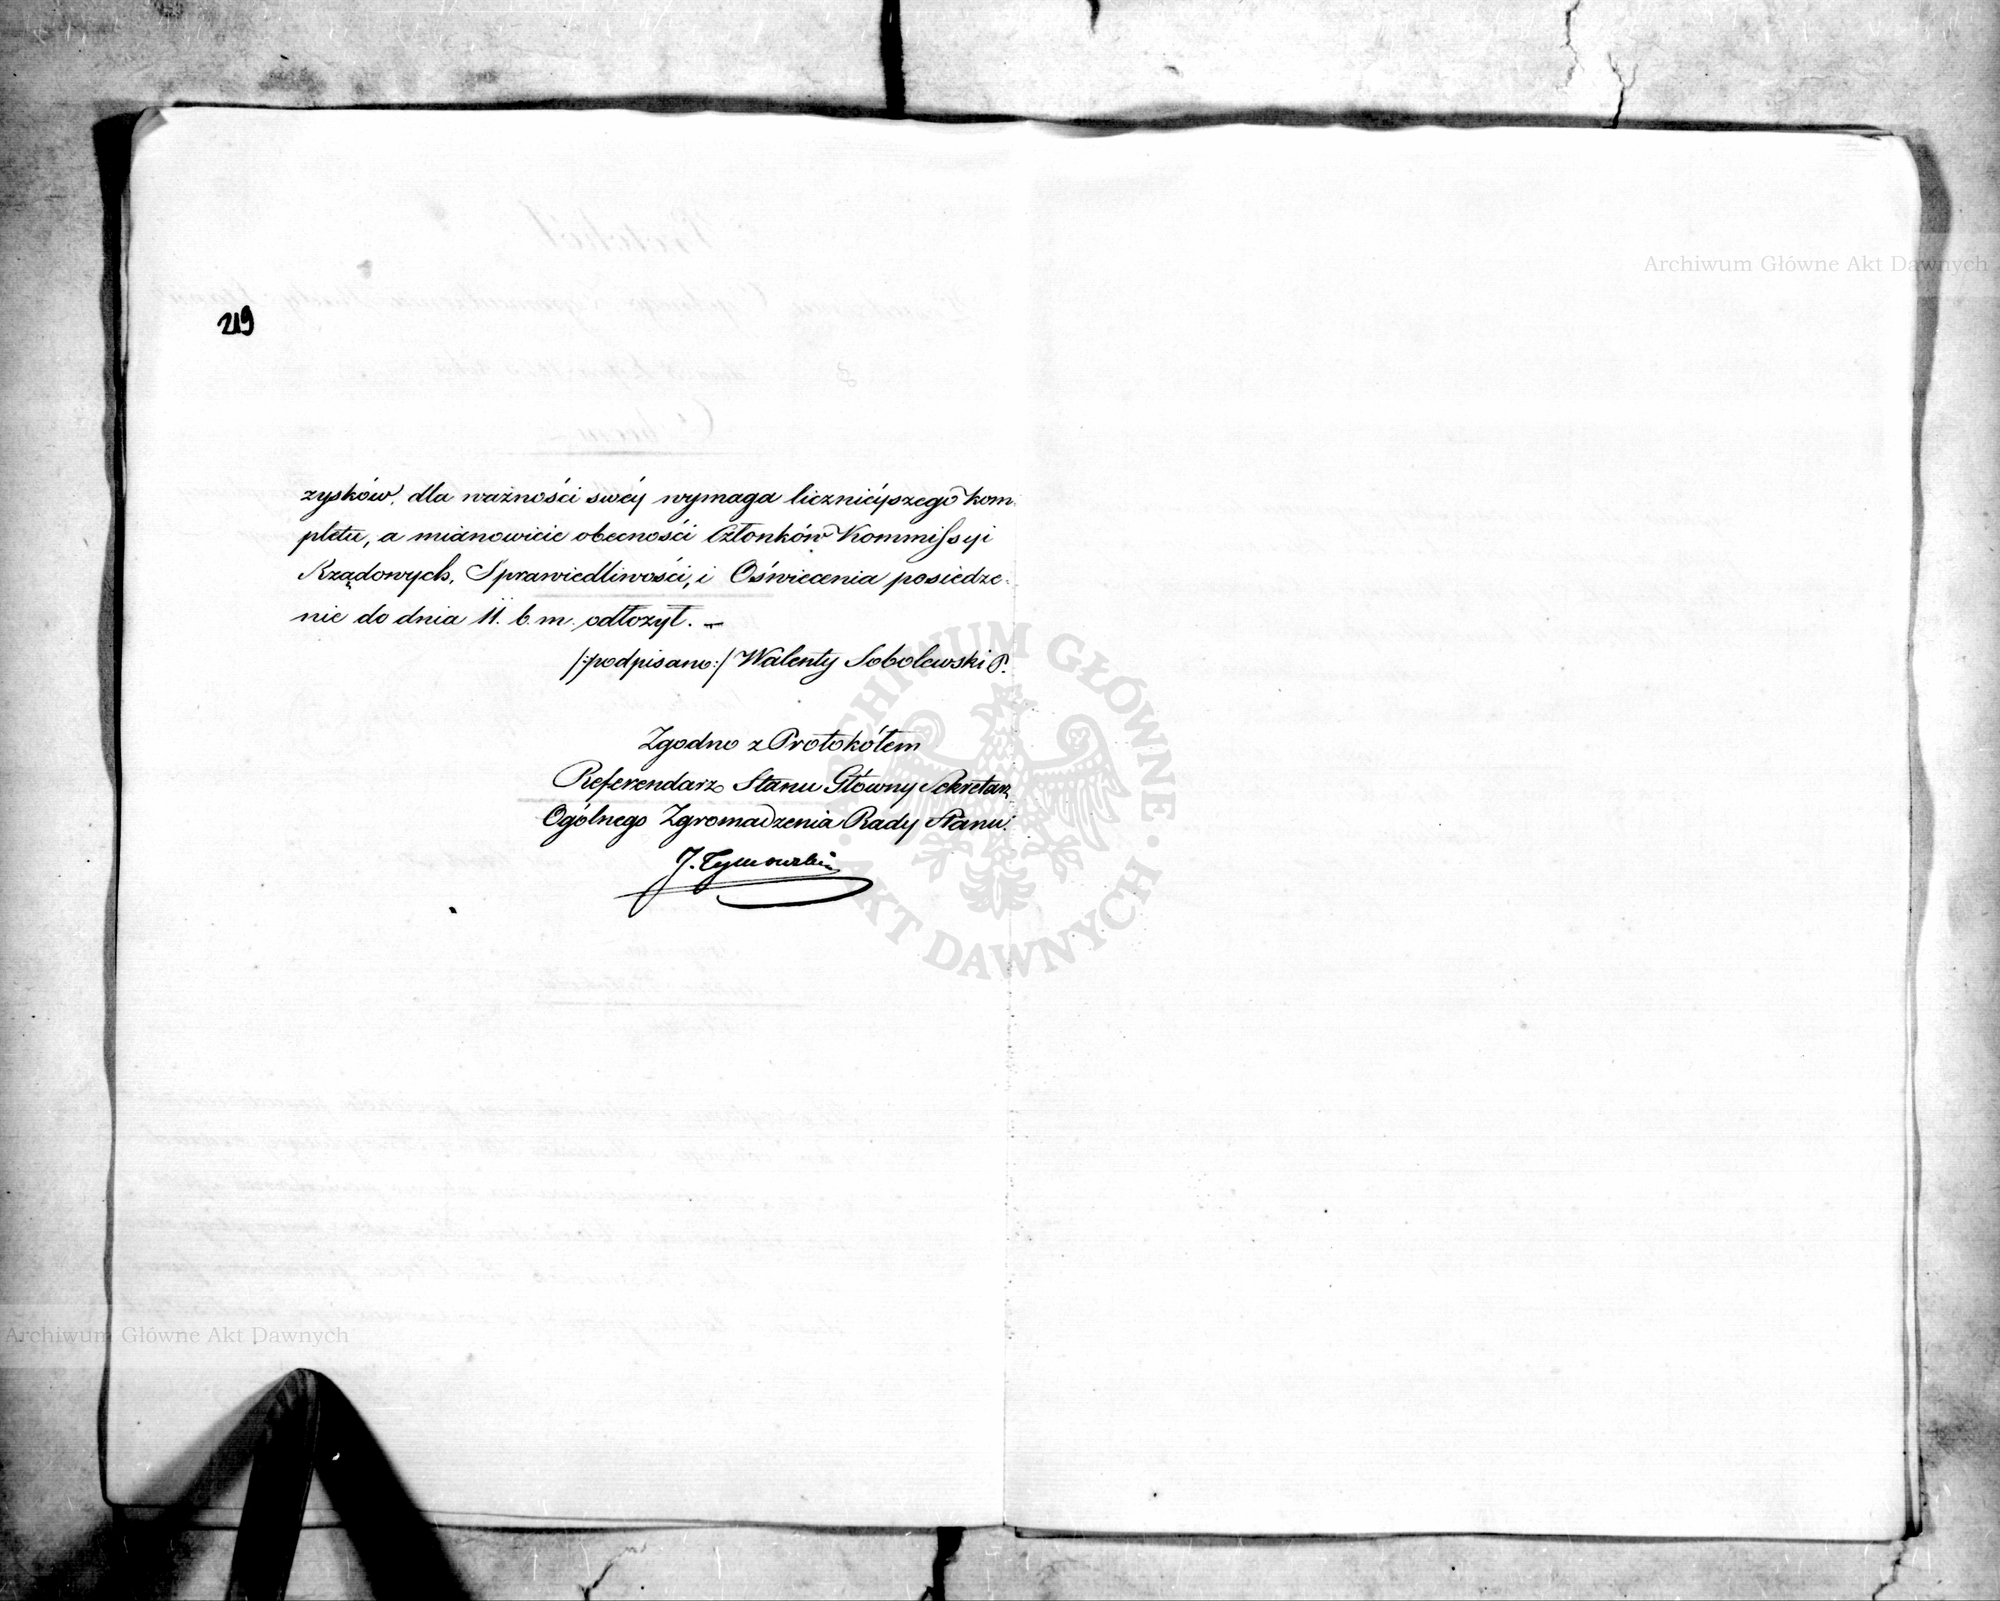 219
Archiwum Główne Akt Dawnych
zysków, dla ważności swéy wymaga licznieyszego kom
pletu, a mianowicie obecności Członków Kommissyi
Rządowych, Sprawiedliwości, i Oświecenia posiedze-
nie do dnia 11. b. m. odłożył. —
/:podpisano:/ Walenty Sobolewski P.
Zgodno z Protokółem
Referendarz Stanu Główny Sekretarz
Ogólnego Zgromadzenia Rady Stanu.
J. Tymowski
ARCHIWUM GŁÓWNE
AKT DAWNYCH
Archiwum Główne Akt Dawnych